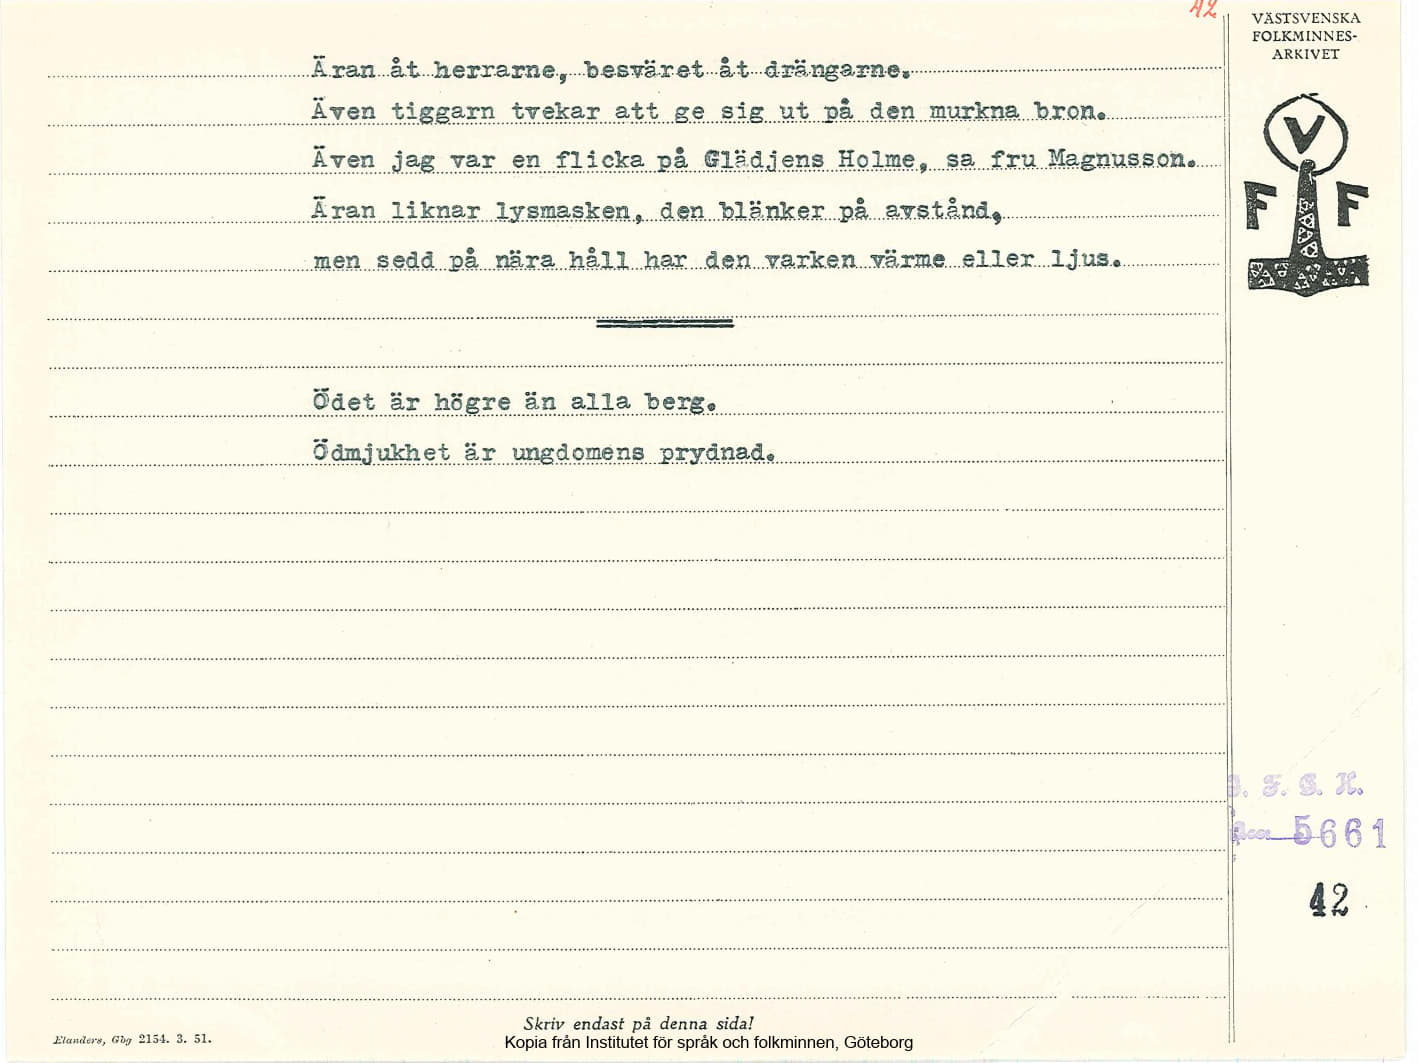 42
VÄSTSVENSKA
FOLKMINNES-
ARKIVET
Äran åt herrarne, besväret åt drängarne.
Även tiggarn tvekar att ge sig ut på den murkna bron.
Även jag var en flicka på Glädjens Holme, sa fru Magnusson.
Äran liknar lysmasken, den blänker på avstånd,
men sedd på nära håll har den varken värme eller ljus.
V
F F
Ödet är högre än alla berg.
Ödmjukhet är ungdomens prydnad.
5661
42
Skriv endast på denna sida!
Elanders, Gbg 2154. 3. 51.
Kopia från Institutet för språk och folkminnen, Göteborg